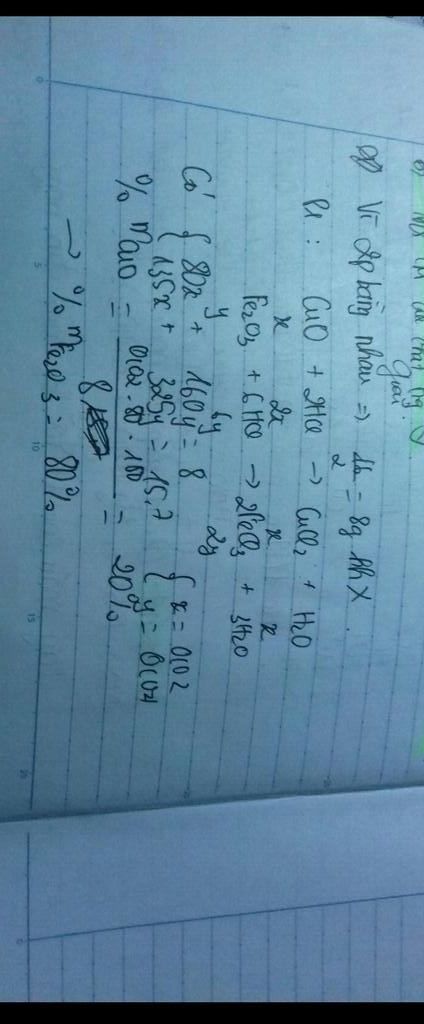 Giải:
Vì 2 phần bằng nhau => 16/2 = 8g hh X.
Pt: CuO + 2HCl → CuCl₂ + H₂O
x 2x x x
Fe₂O₃ + 6HCl → 2FeCl₃ + 3H₂O
y 6y 2y
Có { 80x + 160y = 8 { x = 0,02
{ 135x + 325y = 15,7 { y = 0,04
% mCuO = 0,02 . 80 . 100 / 8 = 20%
→ % mFe₂O₃ = 80%